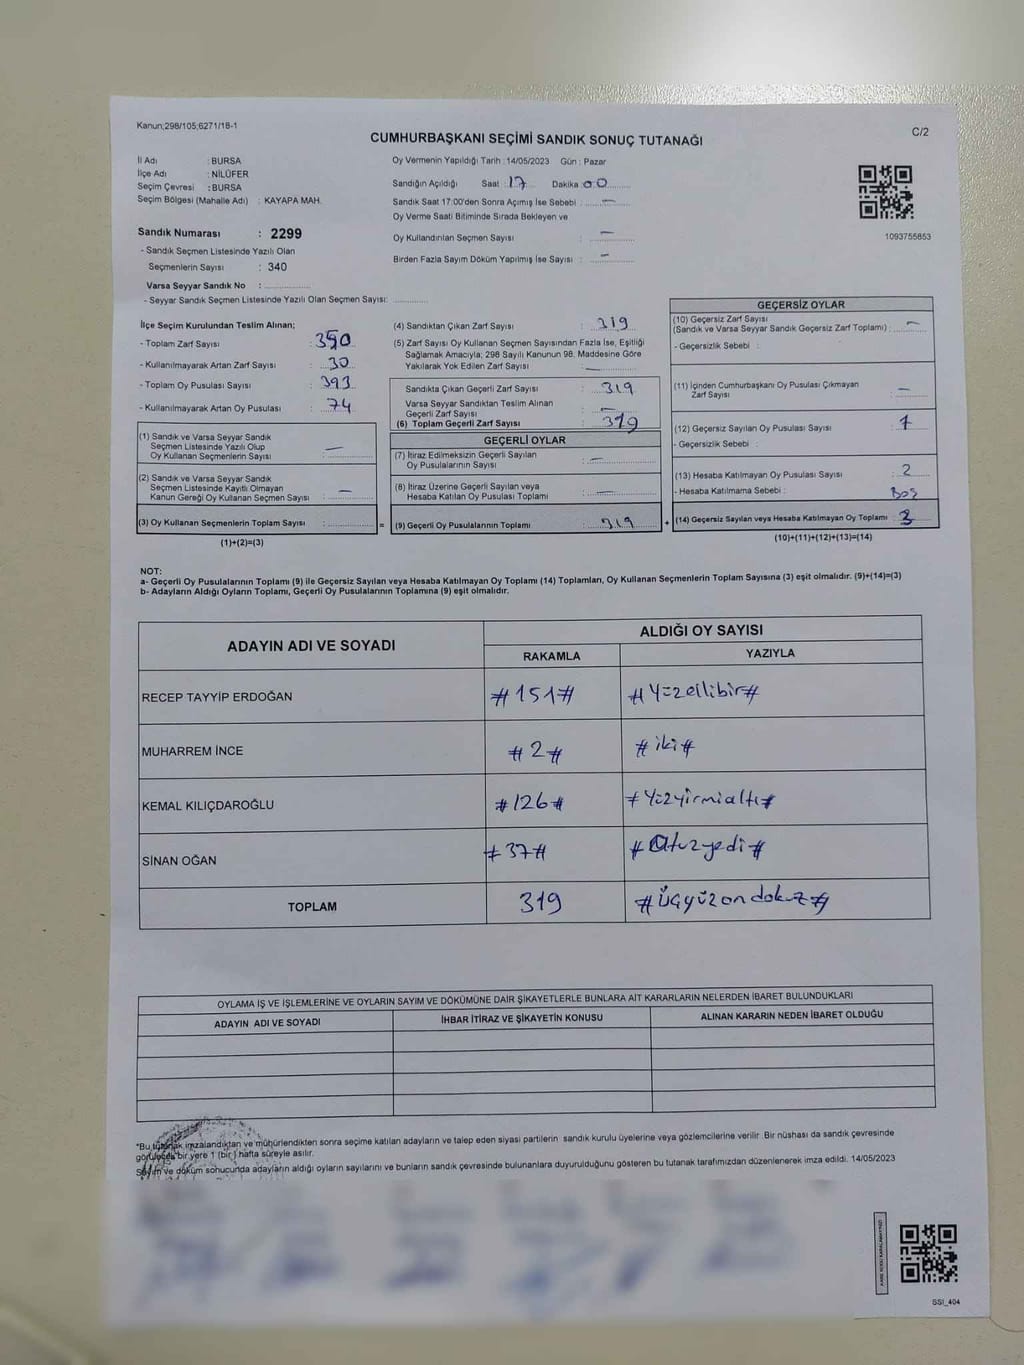 Kanun;298/105;6271/18-1
C/2
CUMHURBAŞKANI SEÇİMİ SANDIK SONUÇ TUTANAĞI
İl Adı : BURSA
İlçe Adı : NİLÜFER
Seçim Çevresi : BURSA
Seçim Bölgesi (Mahalle Adı) : KAYAPA MAH.
Sandık Numarası : 2299
- Sandık Seçmen Listesinde Yazılı Olan
Seçmenlerin Sayısı : 340
Varsa Seyyar Sandık No :
- Seyyar Sandık Seçmen Listesinde Yazılı Olan Seçmen Sayısı:
Oy Vermenin Yapıldığı Tarih : 14/05/2023 Gün : Pazar
Sandığın Açıldığı Saat : 17 Dakika 00
Sandık Saat 17:00'den Sonra Açımış İse Sebebi : —
Oy Verme Saati Bitiminde Sırada Bekleyen ve
Oy Kullandırılan Seçmen Sayısı : —
Birden Fazla Sayım Döküm Yapılmış İse Sayısı : —
1093755853
İlçe Seçim Kurulundan Teslim Alınan;
- Toplam Zarf Sayısı : 350
- Kullanılmayarak Artan Zarf Sayısı : 30
- Toplam Oy Pusulası Sayısı : 393
- Kullanılmayarak Artan Oy Pusulası : 74
(1) Sandık ve Varsa Seyyar Sandık
Seçmen Listesinde Yazılı Olup
Oy Kullanan Seçmenlerin Sayısı : —
(2) Sandık ve Varsa Seyyar Sandık
Seçmen Listesinde Kayıtlı Olmayan
Kanun Gereği Oy Kullanan Seçmen Sayısı : —
(3) Oy Kullanan Seçmenlerin Toplam Sayısı : =
(1)+(2)=(3)
(4) Sandıktan Çıkan Zarf Sayısı : 319
(5) Zarf Sayısı Oy Kullanan Seçmen Sayısından Fazla İse, Eşitliği
Sağlamak Amacıyla; 298 Sayılı Kanunun 98. Maddesine Göre
Yakılarak Yok Edilen Zarf Sayısı : —
Sandıkta Çıkan Geçerli Zarf Sayısı : 319
Varsa Seyyar Sandıktan Teslim Alınan
Geçerli Zarf Sayısı : —
(6) Toplam Geçerli Zarf Sayısı : 319
GEÇERLİ OYLAR
(7) İtiraz Edilmeksizin Geçerli Sayılan
Oy Pusulalarının Sayısı : —
(8) İtiraz Üzerine Geçerli Sayılan veya
Hesaba Katılan Oy Pusulası Toplamı : —
(9) Geçerli Oy Pusulalarının Toplamı : 319 +
GEÇERSİZ OYLAR
(10) Geçersiz Zarf Sayısı
(Sandık ve Varsa Seyyar Sandık Geçersiz Zarf Toplamı) : —
- Geçersizlik Sebebi :
(11) İçinden Cumhurbaşkanı Oy Pusulası Çıkmayan
Zarf Sayısı : —
(12) Geçersiz Sayılan Oy Pusulası Sayısı : 1
- Geçersizlik Sebebi :
(13) Hesaba Katılmayan Oy Pusulası Sayısı : 2
- Hesaba Katılmama Sebebi : Boş
(14) Geçersiz Sayılan veya Hesaba Katılmayan Oy Toplamı : 3
(10)+(11)+(12)+(13)=(14)
NOT:
a- Geçerli Oy Pusulalarının Toplamı (9) ile Geçersiz Sayılan veya Hesaba Katılmayan Oy Toplamı (14) Toplamları, Oy Kullanan Seçmenlerin Toplam Sayısına (3) eşit olmalıdır. (9)+(14)=(3)
b- Adayların Aldığı Oyların Toplamı, Geçerli Oy Pusulalarının Toplamına (9) eşit olmalıdır.
ADAYIN ADI VE SOYADI
ALDIĞI OY SAYISI
RAKAMLA YAZIYLA
RECEP TAYYİP ERDOĞAN #151# #Yüzellibir#
MUHARREM İNCE #2# #iki#
KEMAL KILIÇDAROĞLU #126# #Yüzyirmialtı#
SİNAN OĞAN #37# #Otuzyedi#
TOPLAM 319 #Üçyüzondokuz#
OYLAMA İŞ VE İŞLEMLERİNE VE OYLARIN SAYIM VE DÖKÜMÜNE DAİR ŞİKAYETLERLE BUNLARA AİT KARARLARIN NELERDEN İBARET BULUNDUKLARI
ADAYIN ADI VE SOYADI İHBAR İTİRAZ VE ŞİKAYETİN KONUSU ALINAN KARARIN NEDEN İBARET OLDUĞU
*Bu tutanak imzalandıktan ve mühürlendikten sonra seçime katılan adayların ve talep eden siyasi partilerin sandık kurulu üyelerine veya gözlemcilerine verilir. Bir nüshası da sandık çevresinde
görülecek bir yere 1 (bir) hafta süreyle asılır.
Sayım ve döküm sonucunda adayların aldığı oyların sayılarını ve bunların sandık çevresinde bulunanlara duyurulduğunu gösteren bu tutanak tarafımızdan düzenlenerek imza edildi. 14/05/2023
SSI_404